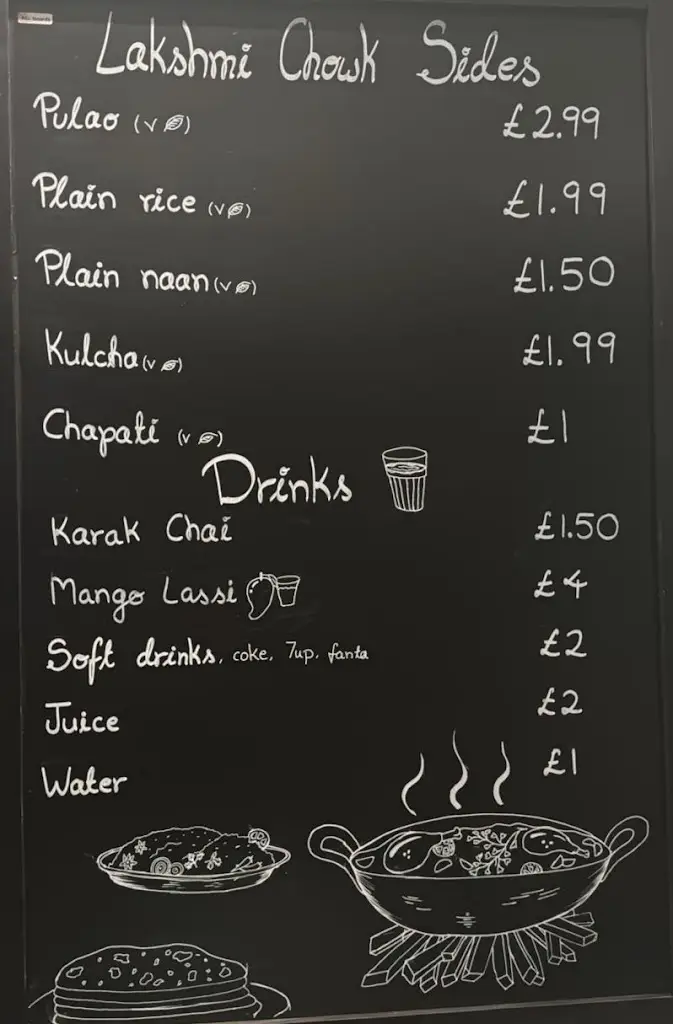 Lakshmi Chowk Sides
Pulao (v) £2.99
Plain rice (v) £1.99
Plain naan (v) £1.50
Kulcha (v) £1.99
Chapati (v) £1
Drinks
Karak Chai £1.50
Mango Lassi £4
Soft drinks, coke, 7up, fanta £2
Juice £2
Water £1